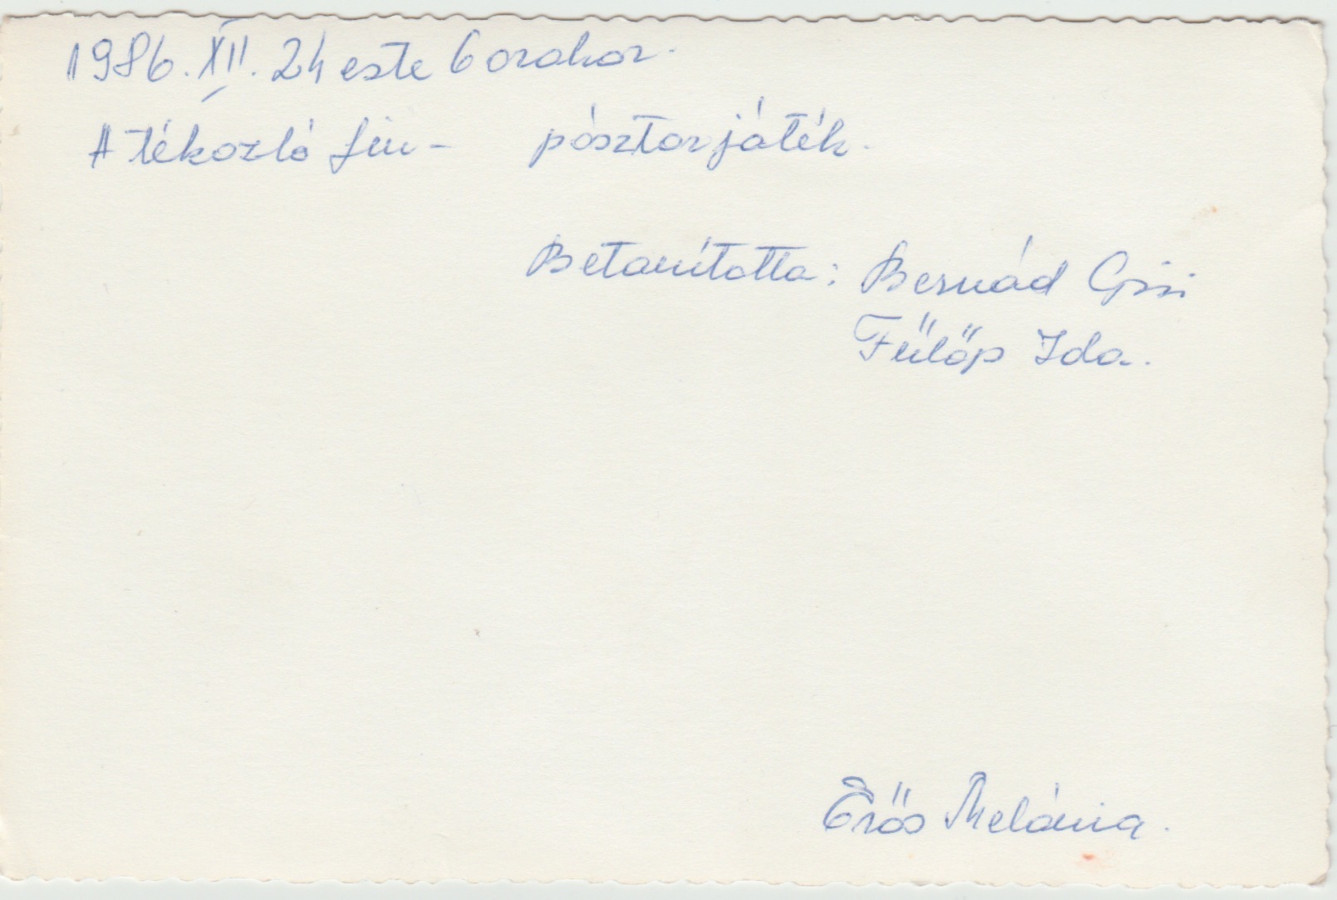 1986. XII. 24 este 6 orakor.
A tékozló fiu - pásztorjáték.
Betanította: Bernád Gizi
Fülöp Ida.
Erős Melánia.